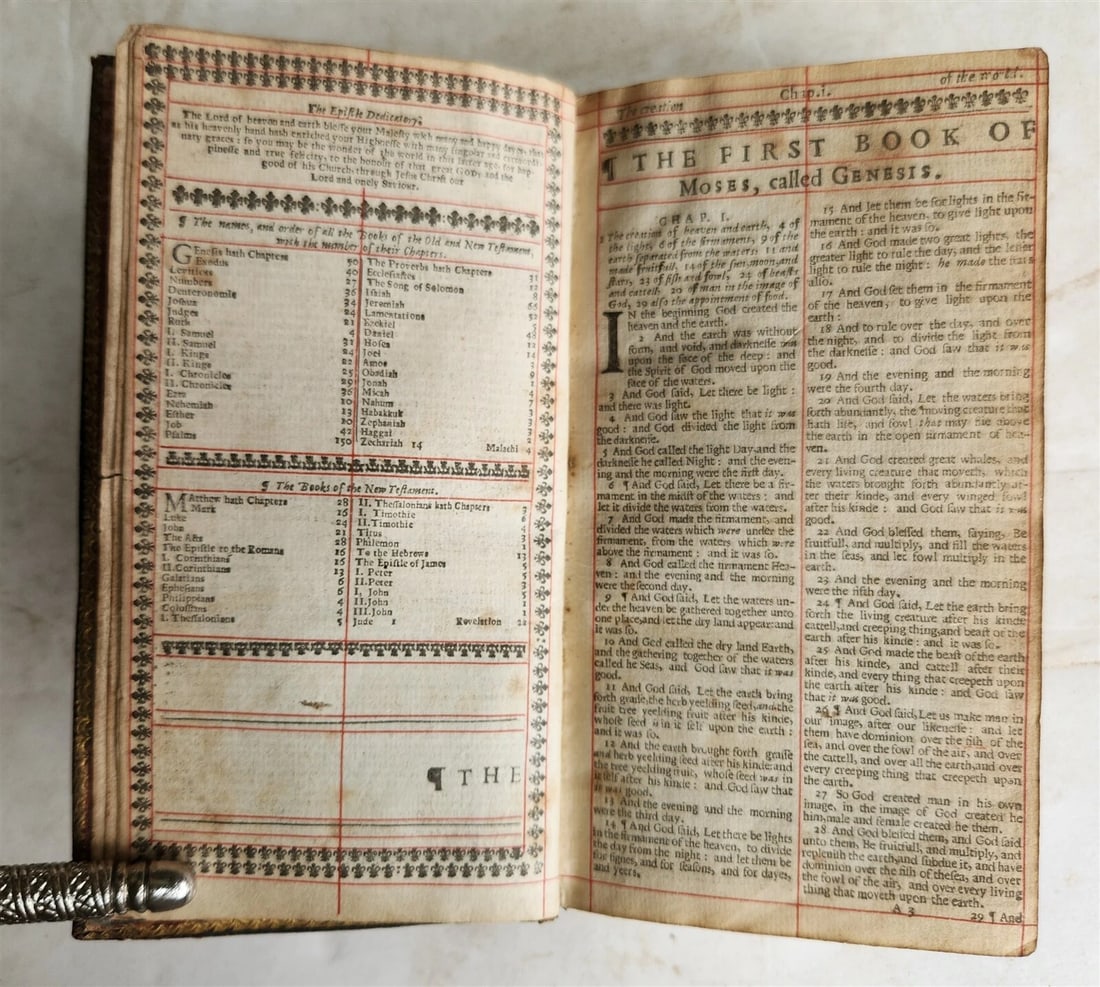 The Epiſtle Dedicatory.
The Lord of heaven and earth bleſſe your Majeſty with many and happy dayes, that
as his heavenly hand hath enriched your Highneſſe with many ſingular and extraordi-
nary graces: ſo you may be the wonder of the world in this latter age, for hap-
pineſſe and true felicity, to the honour of that great GOD, and the
good of his Church, through Jeſus Chriſt our
Lord and onely Saviour.
¶ The names, and order of all the Books of the Old and New Teſtament,
with the number of their Chapters.
GEneſis hath Chapters 50
Exodus 40
Leviticus 27
Numbers 36
Deuteronomie 34
Joſhua 24
Judges 21
Ruth 4
I. Samuel 31
II. Samuel 24
I. Kings 22
II. Kings 25
I. Chronicles 29
II. Chronicles 36
Ezra 10
Nehemiah 13
Eſther 10
Job 42
Pſalms 150
The Proverbs hath Chapters 31
Eccleſiaſtes 12
The Song of Solomon 8
Iſaiah 66
Jeremiah 52
Lamentations 5
Ezekiel 48
Daniel 12
Hoſea 14
Joel 3
Amos 9
Obadiah 1
Jonah 4
Micah 7
Nahum 3
Habakkuk 3
Zephaniah 3
Haggai 2
Zechariah 14 Malachi 4
¶ The Books of the New Teſtament.
MAtthew hath Chapters 28
Mark 16
Luke 24
John 21
The Acts 28
The Epiſtle to the Romans 16
I. Corinthians 16
II. Corinthians 13
Galatians 6
Epheſians 6
Philippians 4
Coloſſians 4
I. Theſſalonians 5
II. Theſſalonians hath Chapters 3
I. Timothie 6
II. Timothie 4
Titus 3
Philemon 1
To the Hebrews 13
The Epiſtle of James 5
I. Peter 5
II. Peter 3
I. John 5
II. John 1
III. John 1
Jude 1 Revelation 22
¶ THE
The creation Chap. i. of the world.
¶ THE FIRST BOOK OF
MOSES, called GENESIS.
CHAP. I.
1 The creation of heaven and earth, 4 of
the light, 6 of the firmament, 9 of the
earth ſeparated from the waters, 11 and
made fruitfull, 14 of the ſun, moon, and
ſtars, 23 of fiſh and fowl, 24 of beaſts
and cattell, 26 of man in the image of
God, 29 alſo the appointment of food.
IN the beginning God created the
heaven and the earth.
2 And the earth was without
form, and void, and darkneſſe was
upon the face of the deep: and
the Spirit of God moved upon the
face of the waters.
3 And God ſaid, Let there be light:
and there was light.
4 And God ſaw the light that it was
good: and God divided the light from
the darkneſſe.
5 And God called the light Day, and the
darkneſſe he called Night: and the even-
ing and the morning were the firſt day.
6 ¶ And God ſaid, Let there be a fir-
mament in the midſt of the waters: and
let it divide the waters from the waters.
7 And God made the firmament, and
divided the waters which were under the
firmament, from the waters which were
above the firmament: and it was ſo.
8 And God called the firmament Hea-
ven: and the evening and the morning
were the ſecond day.
9 ¶ And God ſaid, Let the waters un-
der the heaven be gathered together unto
one place, and let the dry land appear: and
it was ſo.
10 And God called the dry land Earth,
and the gathering together of the waters
called he Seas, and God ſaw that it was
good.
11 And God ſaid, Let the earth bring
forth graſſe, the herb yeelding ſeed, and the
fruit tree yeelding fruit after his kinde,
whoſe ſeed is in it ſelf upon the earth:
and it was ſo.
12 And the earth brought forth graſſe
and herb yeelding ſeed after his kinde: and
the tree yeelding fruit, whoſe ſeed was in
it ſelf after his kinde: and God ſaw that
it was good.
13 And the evening and the morning
were the third day.
14 ¶ And God ſaid, Let there be lights
in the firmament of the heaven, to divide
the day from the night: and let them be
for ſignes, and for ſeaſons, and for dayes,
and yeers.
15 And let them be for lights in the fir-
mament of the heaven, to give light upon
the earth: and it was ſo.
16 And God made two great lights, the
greater light to rule the day, and the leſſer
light to rule the night: he made the ſtars
alſo.
17 And God ſet them in the firmament
of the heaven, to give light upon the
earth:
18 And to rule over the day, and over
the night, and to divide the light from
the darkneſſe: and God ſaw that it was
good.
19 And the evening and the morning
were the fourth day.
20 And God ſaid, Let the waters bring
forth abundantly, the moving creature that
hath life, and fowl that may flie above
the earth in the open firmament of hea-
ven.
21 And God created great whales, and
every living creature that moveth, which
the waters brought forth abundantly af-
ter their kinde, and every winged fowl
after his kinde: and God ſaw that it was
good.
22 And God bleſſed them, ſaying, Be
fruitfull, and multiply, and fill the waters
in the ſeas, and let fowl multiply in the
earth.
23 And the evening and the morning
were the fifth day.
24 ¶ And God ſaid, Let the earth bring
forth the living creature after his kinde
cattell, and creeping thing, and beaſt of the
earth after his kinde: and it was ſo.
25 And God made the beaſt of the earth
after his kinde, and cattell after their
kinde, and every thing that creepeth upon
the earth after his kinde: and God ſaw
that it was good.
26 ¶ And God ſaid, Let us make man in
our image, after our likeneſſe: and let
them have dominion over the fiſh of the
ſea, and over the fowl of the air, and over
the cattell, and over all the earth, and over
every creeping thing that creepeth upon
the earth.
27 So God created man in his own
image, in the image of God created he
him, male and female created he them.
28 And God bleſſed them, and God ſaid
unto them, Be fruitfull, and multiply, and
repleniſh the earth, and ſubdue it, and have
dominion over the fiſh of the ſea, and over
the fowl of the air, and over every living
thing that moveth upon the earth.
A 3 29 ¶ And